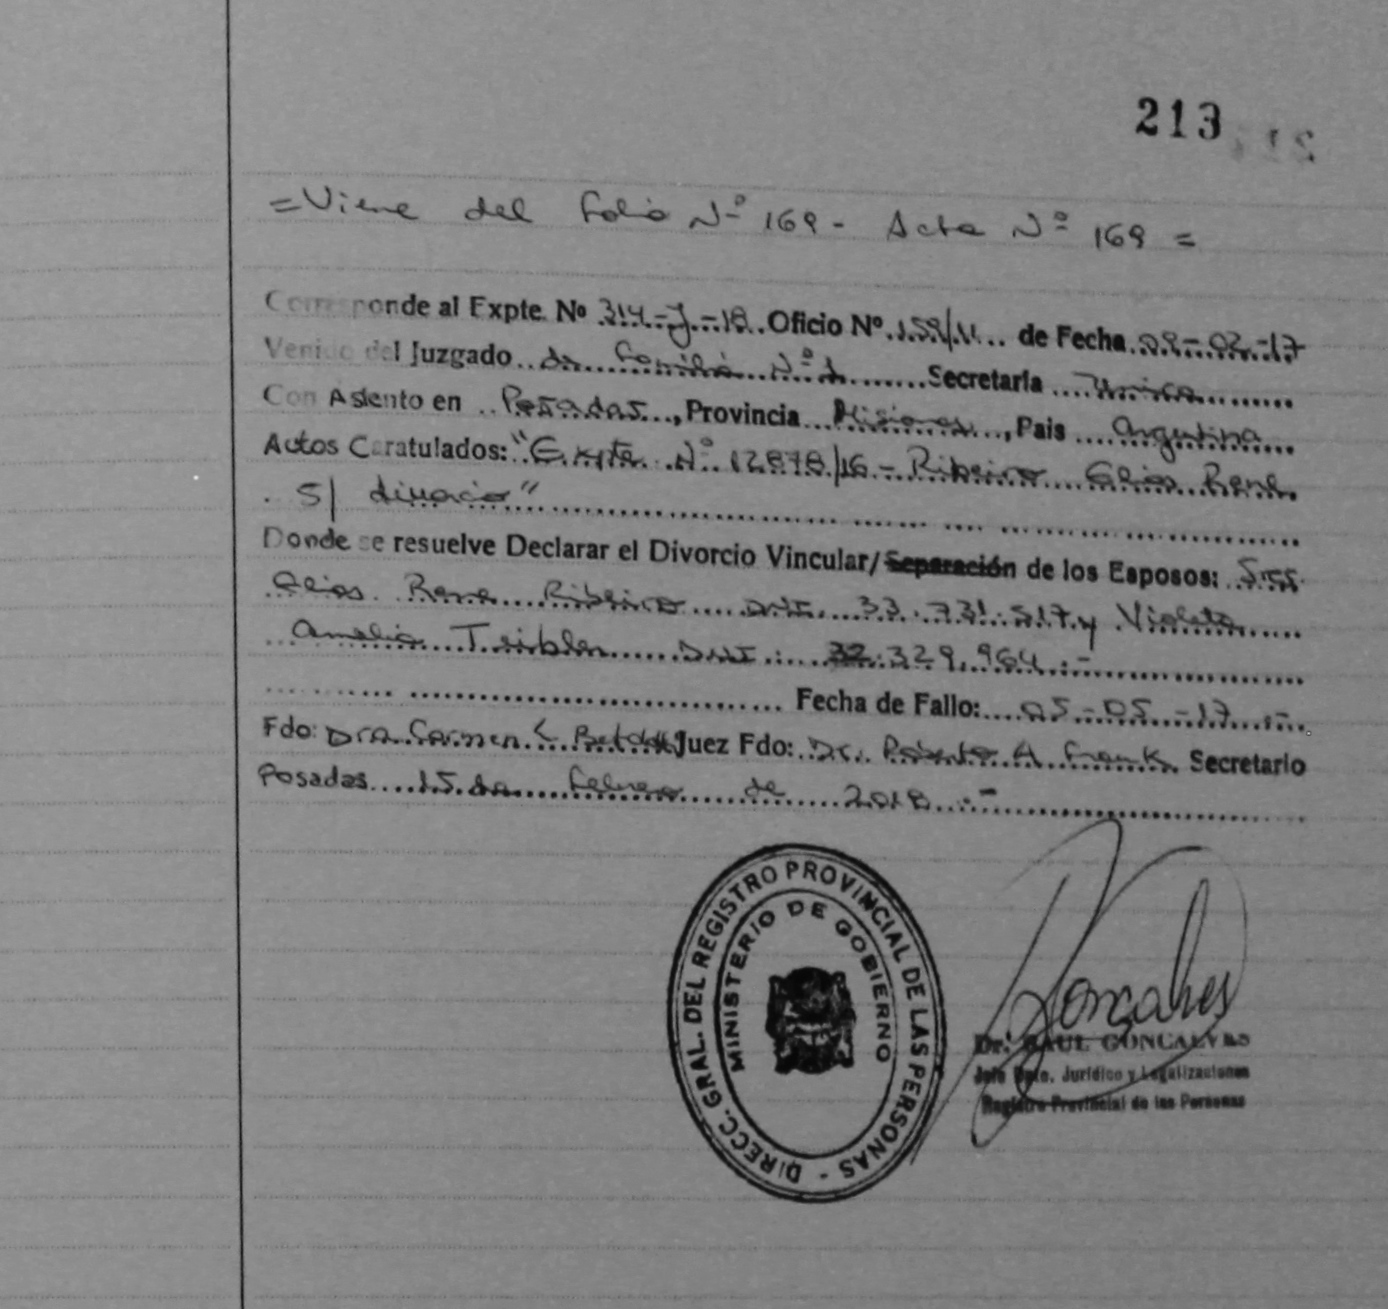 213
=Viene del folio Nº 169 - Acta Nº 169 =
Corresponde al Expte. Nº 314-J-18 Oficio Nº 159/11 de Fecha 09-02-17
Venido del Juzgado de Familia Nº 1 Secretaría Unica
Con Asiento en Posadas, Provincia Misiones, Pais Argentina
Autos Caratulados: "Expte Nº 12878/16 - Ribeiro Elias Rene
S/ divorcio"
Donde se resuelve Declarar el Divorcio Vincular/Separación de los Esposos:
Elias Rene Ribeiro DNI. 33.731.517 y Violeta
Amelia DNI: 32.329.964.-
Fecha de Fallo: 05-05-17.-
Fdo: Dra. Carmen Juez Fdo: Dr. Roberto A. Frank Secretario
Posadas 15 de febrero de 2018.-
DIRECC. GRAL. DEL REGISTRO PROVINCIAL DE LAS PERSONAS -
MINISTERIO DE GOBIERNO
Dr. RAUL GONCALVES
Jefe Dpto. Jurídico y Legalizaciones
Registro Provincial de las Personas